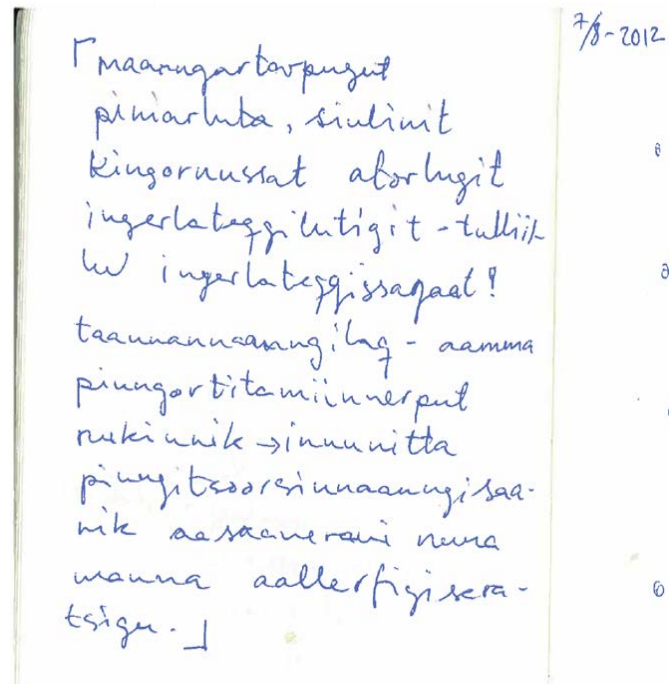 7/8-2012
「maanngartarpugut
piniarluta, siulinit
kingornussat atorlugit
ingerlateqqilutigit - tulliit-
lu ingerlateqqissagaat!
taannannaanngilaq - aamma
pinngortitamiinnerput
nukinnik →inuunitta
pinngitsoorsinnaanngisaa-
nik aasaanerani nuna
manna aallerfigisera-
tsigu.」